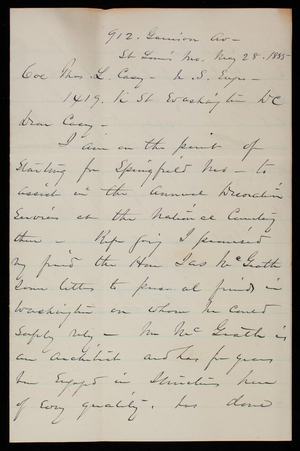 912. Garrison Av-
St Louis Mo. May 28. 1885
Col Thos. L. Casey - U. S. Engr -
1419. K St Washington DC
Dear Casey -
I am on the point of
Starting for Springfield Mo - to
assist in the annual Decoration
Services at the National Cemetery
there - Before going I promised
my friend the Hon Jas McGrath
Some letters to personal friends in
Washington on whom he could
Safely rely - Mr McGrath is
an Architect and has for years
been Engaged in Structures here
of Every quality. has done